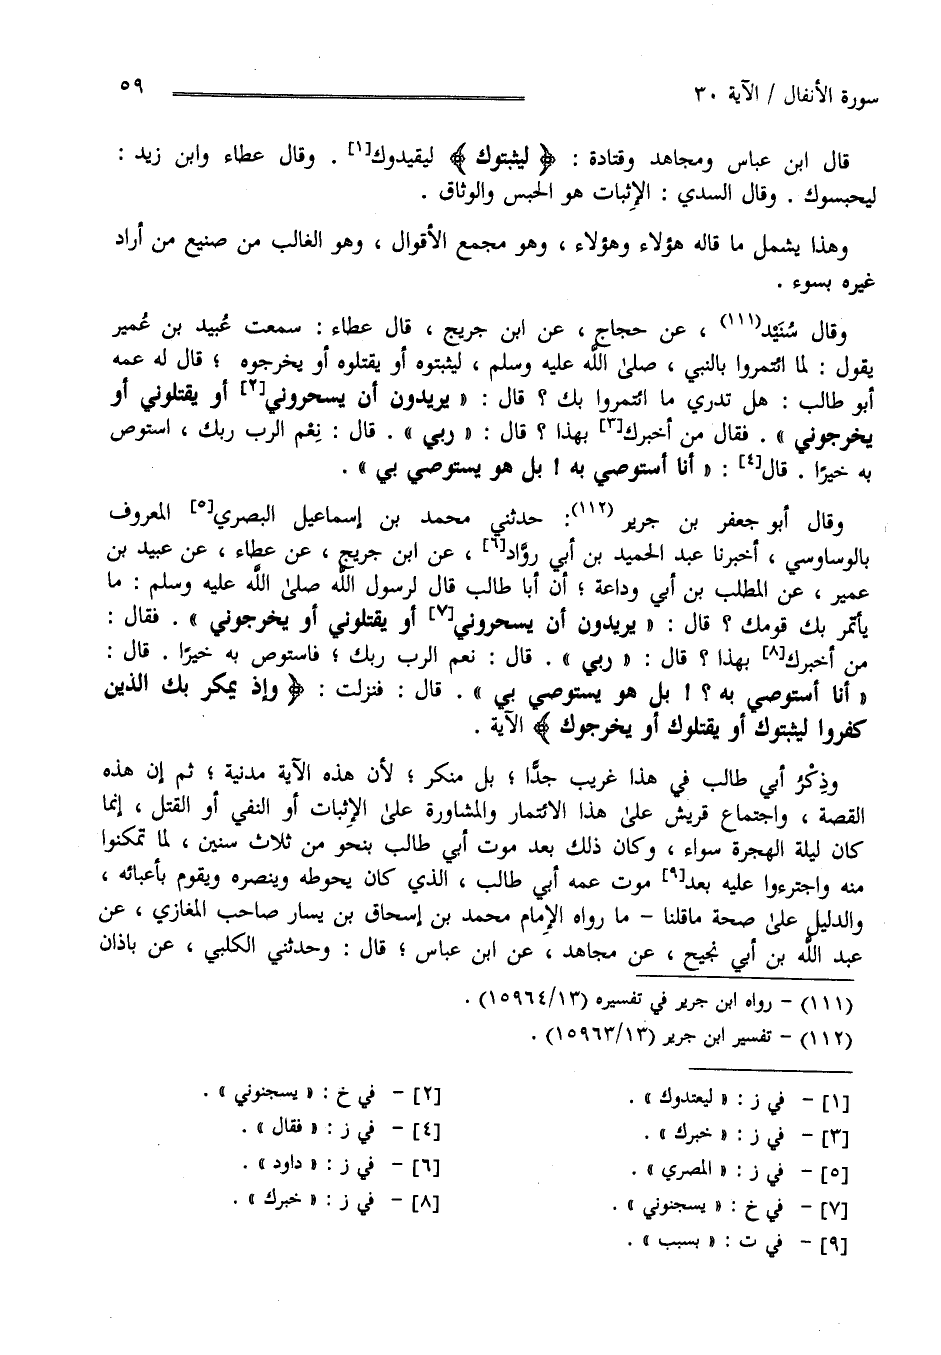 سورة الأنفال / الآية ٣٠ ٥٩
قال ابن عباس ومجاهد وقتادة : ﴿ ليثبتوك ﴾ ليقيدوك[١] . وقال عطاء وابن زيد :
ليحبسوك . وقال السدي : الإثبات هو الحبس والوثاق .
وهذا يشمل ما قاله هؤلاء وهؤلاء ، وهو مجمع الأقوال ، وهو الغالب من صنيع من أراد
غيره بسوء .
وقال سُنَيْد(١١١) ، عن حجاج ، عن ابن جريج ، قال عطاء : سمعت عُبيد بن عُمير
يقول : لما ائتمروا بالنبي ، صلىٰ اللَّه عليه وسلم ، ليثبتوه أو يقتلوه أو يخرجوه ؛ قال له عمه
أبو طالب : هل تدري ما ائتمروا بك ؟ قال : « يريدون أن يسحروني[٢] أو يقتلوني أو
يخرجوني » . فقال من أخبرك[٣] بهذا ؟ قال : « ربي » . قال : نِعْم الرب ربك ، استوص
به خيرًا . قال[٤] : « أنا أستوصي به ! بل هو يستوصي بي » .
وقال أبو جعفر بن جرير (١١٢): حدثني محمد بن إسماعيل البصري[٥] المعروف
بالوساوسي ، أخبرنا عبد الحميد بن أبي روَّاد[٦] ، عن ابن جريج ، عن عطاء ، عن عبيد بن
عمير ، عن المطلب بن أبي وداعة ؛ أن أبا طالب قال لرسول اللَّه صلىٰ اللَّه عليه وسلم : ما
يأتمر بك قومك ؟ قال : « يريدون أن يسحروني[٧] أو يقتلوني أو يخرجوني » . فقال :
من أخبرك[٨] بهذا ؟ قال : « ربي » . قال : نعم الرب ربك ؛ فاستوص به خيرًا . قال :
« أنا أستوصي به ؟ ! بل هو يستوصي بي » . قال : فنزلت : ﴿ وإذ يمكر بك الذين
كفروا ليثبتوك أو يقتلوك أو يخرجوك ﴾ الآية .
وذِكْرُ أبي طالب في هذا غريب جدًّا ؛ بل منكر ؛ لأن هذه الآية مدنية ؛ ثم إن هذه
القصة ، واجتماع قريش علىٰ هذا الائتمار والمشاورة علىٰ الإثبات أو النفي أو القتل ، إنما
كان ليلة الهجرة سواء ، وكان ذلك بعد موت أبي طالب بنحو من ثلاث سنين ، لما تمكنوا
منه واجترءوا عليه بعد[٩] موت عمه أبي طالب ، الذي كان يحوطه وينصره ويقوم بأعبائه ،
والدليل علىٰ صحة ماقلنا – ما رواه الإمام محمد بن إسحاق بن يسار صاحب المغازي ، عن
عبد اللَّه بن أبي نجيح ، عن مجاهد ، عن ابن عباس ؛ قال : وحدثني الكلبي ، عن باذان
(١١١) – رواه ابن جرير في تفسيره (١٥٩٦٤/١٣) .
(١١٢) – تفسير ابن جرير (١٥٩٦٣/١٣) .
[١] – في ز : « ليعتدوك » . [٢] – في خ : « يسجنوني » .
[٣] – في ز : « خبرك » . [٤] – في ز : « فقال » .
[٥] – في ز : « المصري » . [٦] – في ز : « داود » .
[٧] – في خ : « يسجنوني » . [٨] – في ز : « خبرك » .
[٩] – في ت : « بسبب » .